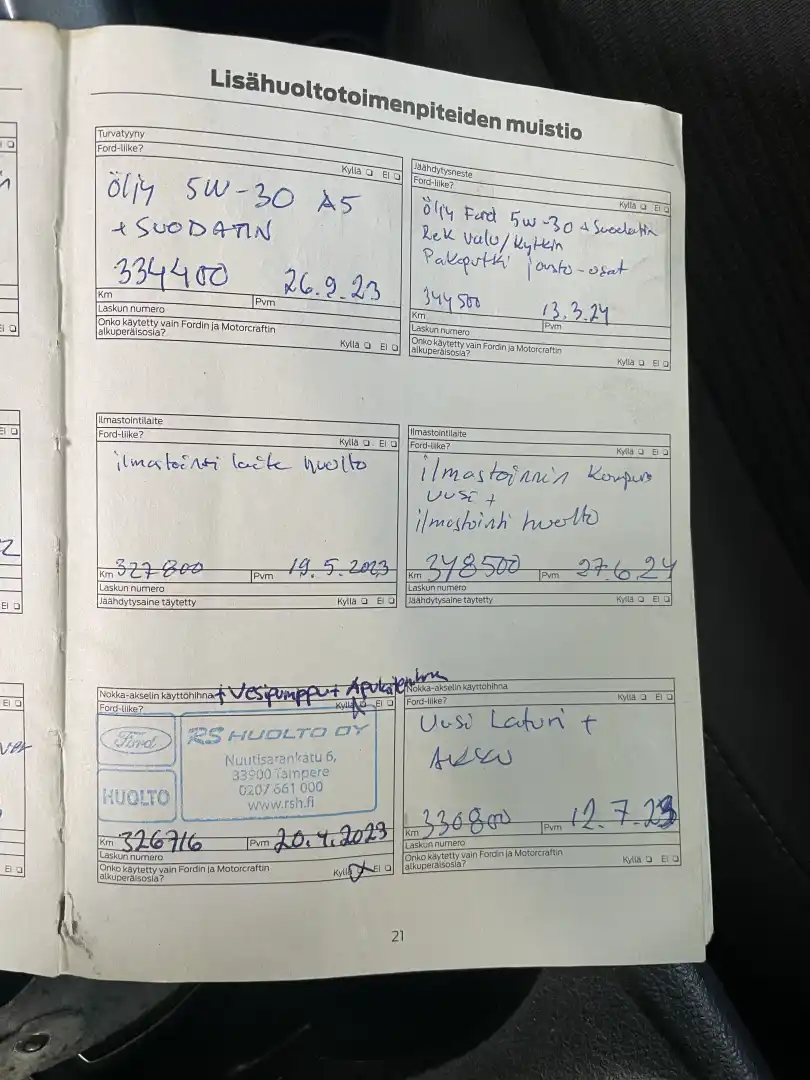 Lisähuoltotoimenpiteiden muistio
Turvatyyny
Ford-liike?
Kyllä ❏ Ei ❏
Öljy 5W-30 A5
+ SUODATIN
334400 26.9.23
Km Pvm
Laskun numero
Onko käytetty vain Fordin ja Motorcraftin
alkuperäisosia?
Kyllä ❏ Ei ❏
Jäähdytysneste
Ford-liike?
Kyllä ❏ Ei ❏
Öljy Ford 5W-30 + Suodatin
Rek valo/kytkin
Pakoputki jousto-osat
344500 13.3.24
Km Pvm
Laskun numero
Onko käytetty vain Fordin ja Motorcraftin
alkuperäisosia?
Kyllä ❏ Ei ❏
Ilmastointilaite
Ford-liike?
Kyllä ❏ Ei ❏
ilmastointi laite huolto
Km 327800 Pvm 19.5.2023
Laskun numero
Jäähdytysaine täytetty Kyllä ❏ Ei ❏
Ilmastointilaite
Ford-liike?
Kyllä ❏ Ei ❏
ilmastoinnin
uusi +
ilmastointi huolto
Km 348500 Pvm 27.6.24
Laskun numero
Jäähdytysaine täytetty Kyllä ❏ Ei ❏
Nokka-akselin käyttöhihna + Vesipumppu +
Ford-liike? Kyllä ❏ Ei ❏
Ford
HUOLTO
RS HUOLTO OY
Nuutisarankatu 6,
33900 Tampere
0207 661 000
www.rsh.fi
Km 326716 Pvm 20.4.2023
Laskun numero
Onko käytetty vain Fordin ja Motorcraftin
alkuperäisosia?
Kyllä ❏ Ei ❏
Nokka-akselin käyttöhihna
Ford-liike?
Kyllä ❏ Ei ❏
Uusi Laturi +
Akku
Km 330800 Pvm 12.7.23
Laskun numero
Onko käytetty vain Fordin ja Motorcraftin
alkuperäisosia?
Kyllä ❏ Ei ❏
21